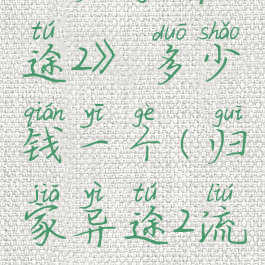 tú duō shǎo
途2》多少
qián yī gè guī
钱一个(归
jiā yì tú liú
家异途2流